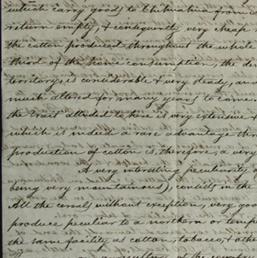 carry goods to Chihuahua from
return empty, & consequently very cheap
the cotton produced throughout the whole
third of the home consumption, the
territory, is considerable & very steady, and
much altered for many years to come
the tract alluded to here is very extensive &
which is under a rare advantage
production of cotton is, therefore, a
A very interesting peculiarity of
being very mountainous), consists in the
All the cereals without exception, very good
produce peculiar to a northern or
the same facility as cotton, tobacco, & othe
of the country